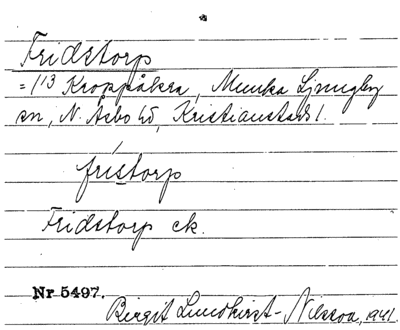 Fridstorp
= 1/13 Kroppåkra, Munka Ljungby
sn, N. Åsbo hd, Kristianstads l.
fristorp
Fridstorp ck.
Nr 5497.
Birgit Lundkvist-Nilsson, 1941